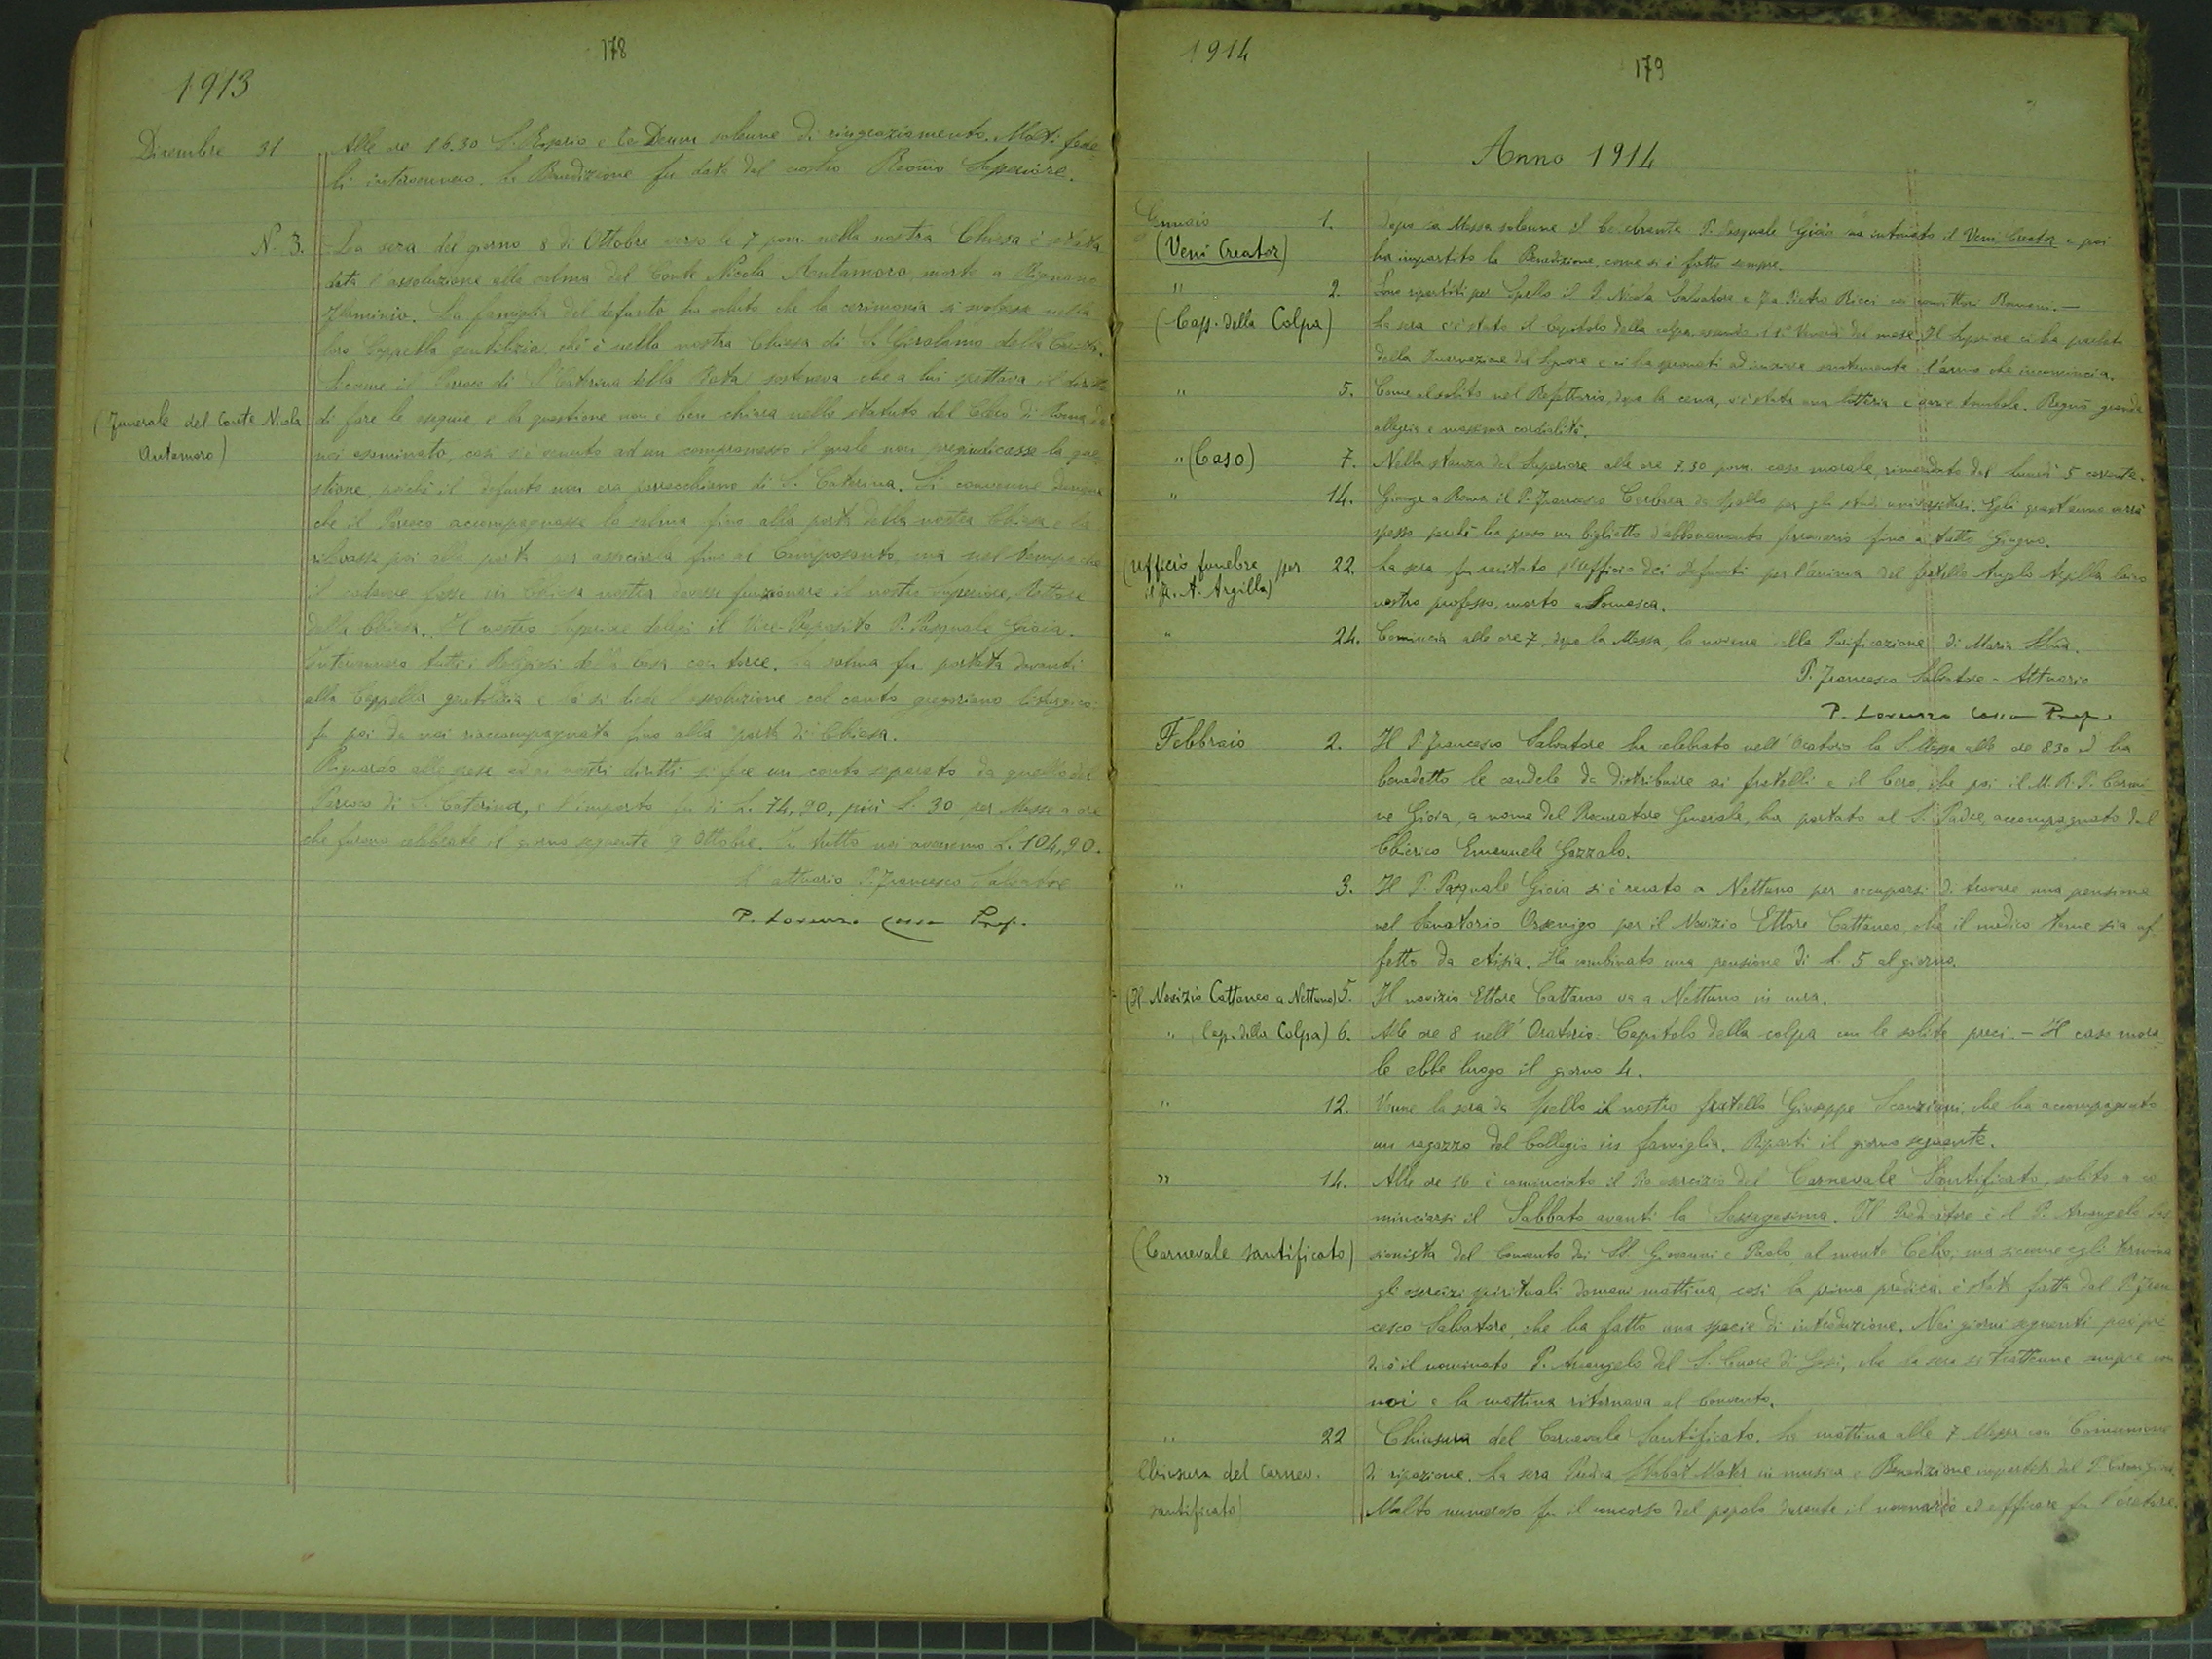 178
1913
Dicembre 31 Alle ore 16.30 S. Rosario e Te Deum solenne di ringraziamento. Molti fede-
li intervennero. La Benedizione fu data dal nostro Rev.mo Superiore.
N. 3. - La sera del giorno 8 di Ottobre verso le 7 pom. nella nostra Chiesa è stata
data l'assoluzione alla salma del Conte Nicola Antamoro, morto a Rignano
Flaminio. La famiglia del defunto ha voluto che la cerimonia si svolgesse nella
loro Cappella gentilizia che è nella nostra Chiesa di S. Girolamo della Carità.
Siccome il Parroco di S. Caterina della Rota sosteneva che a lui spettava il diritto
(Funerale del Conte Nicola
Antamoro)
di fare le esequie e la questione non è ben chiara nello statuto del Clero di Roma da
noi esaminato, così s'è venuto ad un compromesso il quale non pregiudicasse la que-
stione, poichè il defunto non era parrocchiano di S. Caterina. Si convenne dunque
che il Parroco accompagnasse la salma fino alla porta della nostra Chiesa e la
rilevasse poi alla porta per associarla fino al Camposanto, ma nel tempo che
il cadavere fosse in Chiesa nostra dovesse funzionare il nostro Superiore, Rettore
della Chiesa. Il nostro Superiore delegò il Vice-Preposito P. Pasquale Gioia.
Intervennero tutti i Religiosi della Casa con torce. La salma fu portata davanti
alla Cappella gentilizia e là si diede l'assoluzione col canto gregoriano liturgico:
fu poi da noi riaccompagnata fino alla porta di Chiesa.
Riguardo alle spese ed ai nostri diritti si fece un conto separato da quello del
Parroco di S. Caterina, e l'importo fu di L. 74,90, più L. 30 per Messe a ore
che furono celebrate il giorno seguente 9 Ottobre. In tutto noi avemmo L. 104,90.
L'attuario P. Francesco Salvatore
P. Lorenzo Cossa Prep.
1914
179
Anno 1914
Gennaio 1. Dopo la Messa solenne il celebrante P. Pasquale Gioia ha intonato il Veni Creator e poi
(Veni Creator) ha impartito la Benedizione come si è fatto sempre.
" 2. Sono ripartiti per Spello il P. Nicola Salvatore e Fra Pietro Ricci coi convittori Romani. -
(Cap. della Colpa) La sera c'è stato il Capitolo della colpa, essendo il 1° Venerdì del mese. Il Superiore ci ha parlato
della Incarnazione del Signore e ci ha spronati ad iniziare santamente l'anno che incomincia.
" 5. Come al solito nel Refettorio, dopo la cena, c'è stata una lotteria e varie tombole. Regnò grande
allegria e massima cordialità.
" (Caso) 7. Nella stanza del Superiore alle ore 7.30 pom. caso morale, rimandato dal Lunedì 5 corrente.
" 14. Giunge a Roma il P. Francesco Cerbara da Spello per gli studi universitari. Egli quest'anno verrà
spesso perchè ha preso un biglietto d'abbonamento ferroviario fino a tutto Giugno.
(Ufficio funebre per
il fr. A. Argilla)
22. La sera fu recitato l'Ufficio dei Defunti per l'anima del fratello Angelo Argilla laico
nostro professo, morto a Somasca.
" 24. Comincia alle ore 7, dopo la Messa, la novena della Purificazione di Maria SS.ma.
P. Francesco Salvatore - Attuario
P. Lorenzo Cossa Prep.
Febbraio 2. Il P. Francesco Salvatore ha celebrato nell'Oratorio la S. Messa alle ore 8.30 ed ha
benedetto le candele da distribuire ai fratelli e il Cero, che poi il M. R. P. Carmi-
ne Gioia, a nome del Procuratore Generale, ha portato al S. Padre, accompagnato dal
Chierico Emanuele Gazzolo.
" 3. Il P. Pasquale Gioia si è recato a Nettuno per occuparsi di trovare una pensione
nel Sanatorio Orsenigo per il Novizio Ettore Cattaneo, che il medico teme sia af-
fetto da etisia. Ha combinato una pensione di L. 5 al giorno.
(Il Novizio Cattaneo a Nettuno) 5. Il novizio Ettore Cattaneo va a Nettuno in cura.
" (Cap. della Colpa) 6. Alle ore 8 nell'Oratorio: Capitolo della colpa con le solite preci. - Il caso mora-
le ebbe luogo il giorno 4.
" 12. Venne la sera da Spello il nostro fratello Giuseppe Scanziani, che ha accompagnato
un ragazzo del Collegio in famiglia. Ripartì il giorno seguente.
" 14. Alle ore 16 è cominciato il Pio esercizio del Carnevale Santificato, solito a co-
minciarsi il Sabbato avanti la Sessagesima. Il Predicatore è il P. Arcangelo Pas-
(Carnevale santificato) sionista del Convento dei SS. Giovanni e Paolo al monte Celio, ma siccome egli termina
gli esercizi spirituali domani mattina, così la prima predica è stata fatta dal P. Fran-
cesco Salvatore, che ha fatto una specie di introduzione. Nei giorni seguenti poi pre-
dicò il nominato P. Arcangelo del S. Cuore di Gesù, che la sera si trattenne sempre con
noi e la mattina ritornava al Convento.
" 22 Chiusura del Carnevale Santificato. La mattina alle 7 Messa con Comunione
Chiusura del Carnev. di riparazione. La sera Predica Stabat Mater in musica e Benedizione impartita dal P. Carm. Gioia.
santificato) Molto numeroso fu il concorso del popolo durante il novenario ed efficace fu l'oratore.